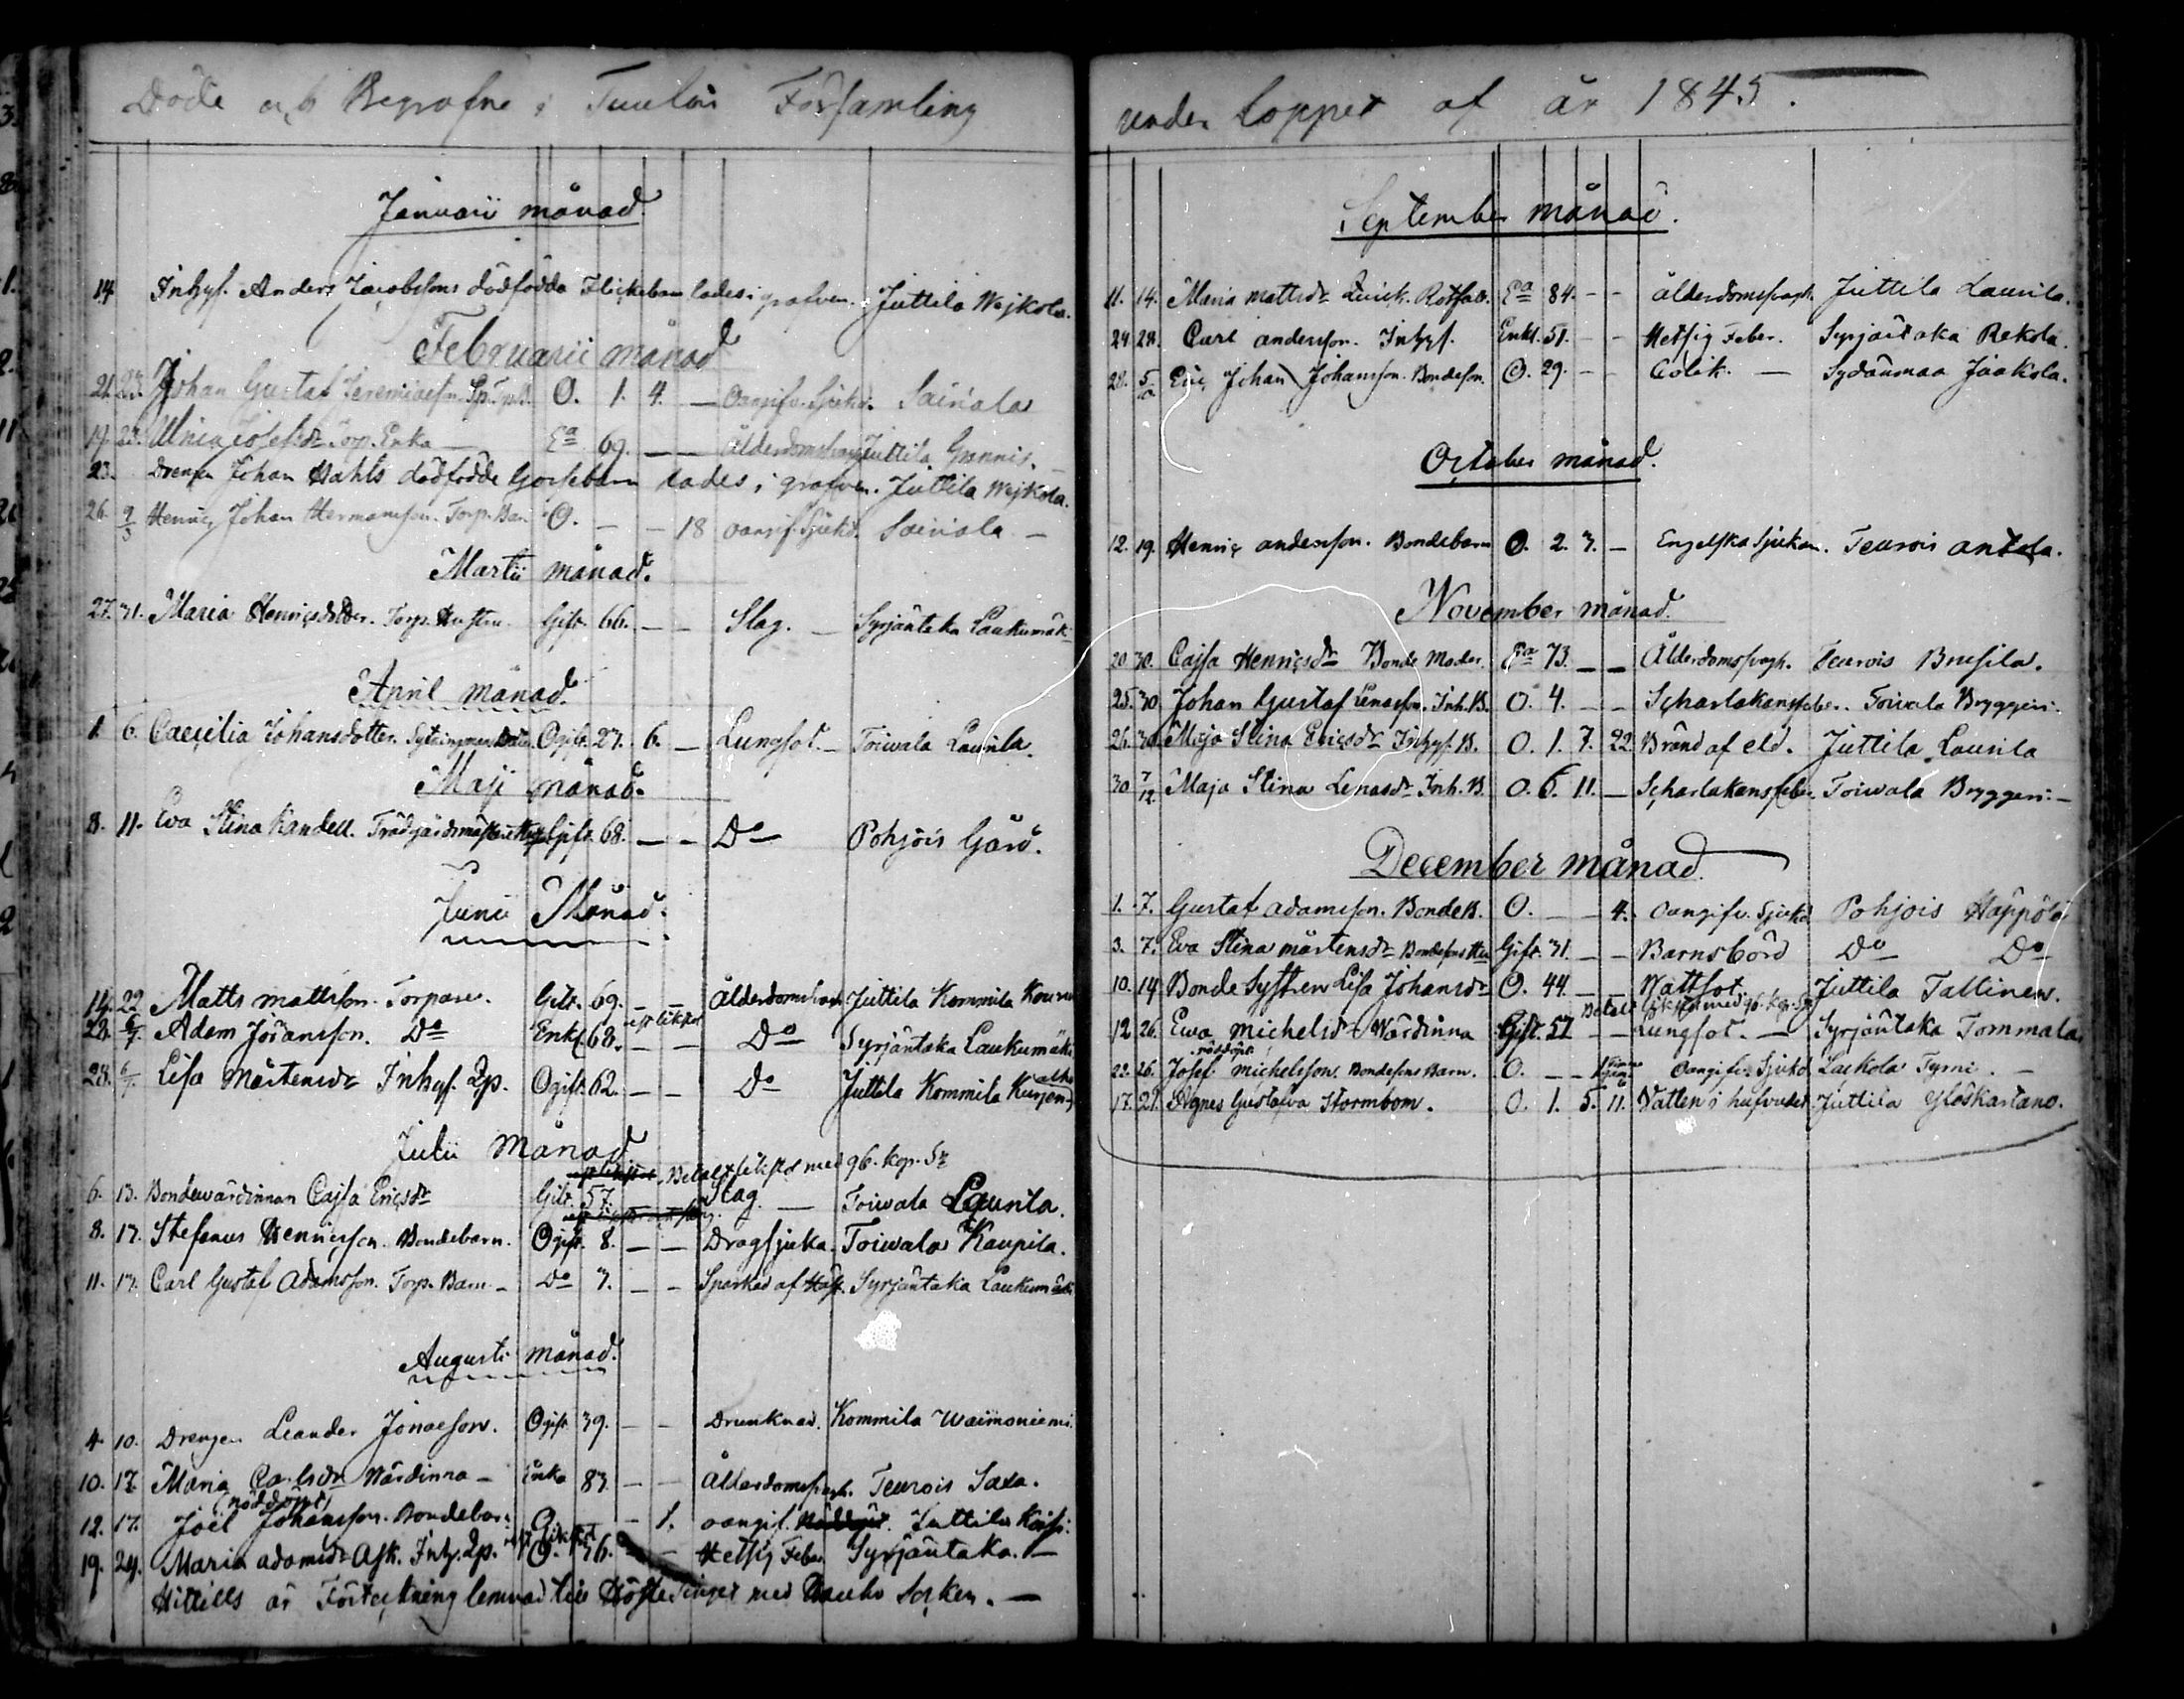 Döde och Begrafne i Tuulois Församling
Januarii månad.
14 Inhys. Anders Jacobssons dödfödda Flickebarn lades i grafven. Juttila Wejkola.
Februarii månad
21. 23. Johan Gustaf Jeremiaeson. O. 1. 4. — Oangifv. Sjukd. Sairiala
19. 23. Ulrica Josefsdr Torp. Enka — Ea 69. — — Ålderdomsvagh. Juttila
23. Drengen Johan Hahls dödfödde Gossebarn lades i grafven. Juttila Wejkola.
26. 9/3 Henric Johan Hermansson. Torp. Bar. O. — — 18 oangif. Sjukd. Sairiala —
Martii månad.
27. 31. Maria Henricsdotter. Torp. Hustru. Gift. 66. — — Slag. — Syrjäntaka Laukumäk
April månad.
1. 6. Caecilia Johansdotter. Ogift. 27. 6. — Lungsot. — Toivala Laurila.
Maji månad.
8. 11. Eva Stina Randell. Gift. 68. — — Do Pohjois Gård.
Junii Månad.
14. 22. Matts mattsson. Torpare. Gift. 69. — — Ålderdomsvagh Juttila Kommila
28. 6/7. Adam Jöransson. Do Enkl. 68. — — Do Syrjäntaka Laukumäki
28. 6/7. Lisa Mårtensdr Inhys. Qp. Ogift. 62. — — Do Juttila Kommila
Julii Månad
Betalt likstol med 96. kop. Sr
6. 13. Bondewärdinnan Cajsa Ericsdr Gift. 57. Slag. — Toivala Laurila.
8. 17. Stefanus Henricsson. Bondebarn. Ogift. 8. — — Dragsjuka. Toivala Kaupila.
11. 17. Carl Gustaf Adamsson. Torp. Barn — Do 7. — — Sparkad af Häst. Syrjäntaka Laukumäki
Augusti månad.
4. 10. Drengen Leander Jonaeson. Ogift 39. — — Drunknad. Kommila Waimoniemi.
10. 17. Maria Carlsdr Wärdinna — Enka 83. — — Ålderdomsvagh. Teurois Saxa.
(nöddöpt)
12. 17. Joël Johansson. Bondebar: O. — — 1. oangif. Juttila
19. 24. Maria adamsdr Afsk. Inhy. Qp. O. 36. — — Hetsig Feber Syrjäntaka. —
Hittills är Förteckning lemnad till Höste Tinget med Sochen. —
under loppet af år 1845.
September månad.
11. 14. Maria mattsdr Quick. Ea 84. — — Ålderdomsvagh. Juttila Laurila.
24. 28. Carl andersson. Inhys. Enkl. 51. — — Hetsig Feber. Syrjäntaka Rekola.
28. 5/10 Eric Johan Johansson. Bondeson. O. 29. — — Colik. — Sydänmaa Jaakola.
October månad.
12. 19. Henric andersson. Bondebarn O. 2. 3. — Engelska Sjukan. Teurois antola.
November månad.
20. 30. Cajsa Henricsdr Bonde Moder. Ea 73. — — Ålderdomsvagh. Teurois Brusila.
25. 30. Johan Gustaf Lenasson. Inh. B. O. 4. — — Scharlakansfeber. Toivala Bryggeri.
26. 30. Maja Stina Ericsdr Inhys. B. O. 1. 7. 22. Bränd af eld. Juttila Laurila
30 7/12. Maja Stina Lenasdr Inh. B. O. 6. 11. — Scharlakansfeber. Toivala Bryggeri. —
December månad.
1. 7. Gustaf adamsson. Bonde B. O. — — 4. oangifv. Sjukd Pohjois Häppölä
3. 7. Eva Stina mårtensdr Gift. 31. — — Barnsbörd Do Do
10. 14 Bonde Systren Lisa Johansdr O. 44. — — Wattsot. Juttila Tallinen.
Betalt likstol med 96. kop. Sr
12 26. Ewa michelsdr Wärdinna Gift. 51 — — Lungsot. — Syrjäntaka Tommala
nöddöpt
22. 26. Josef michelsson. Bondesons Barn. O. — — Oangifv. Sjukd Laikola Tyrni. —
17. 21. Agnes Gustafva Stormbom. O. 1. 5. 11. Vatten i hufvudet Juttila Yläskartano.